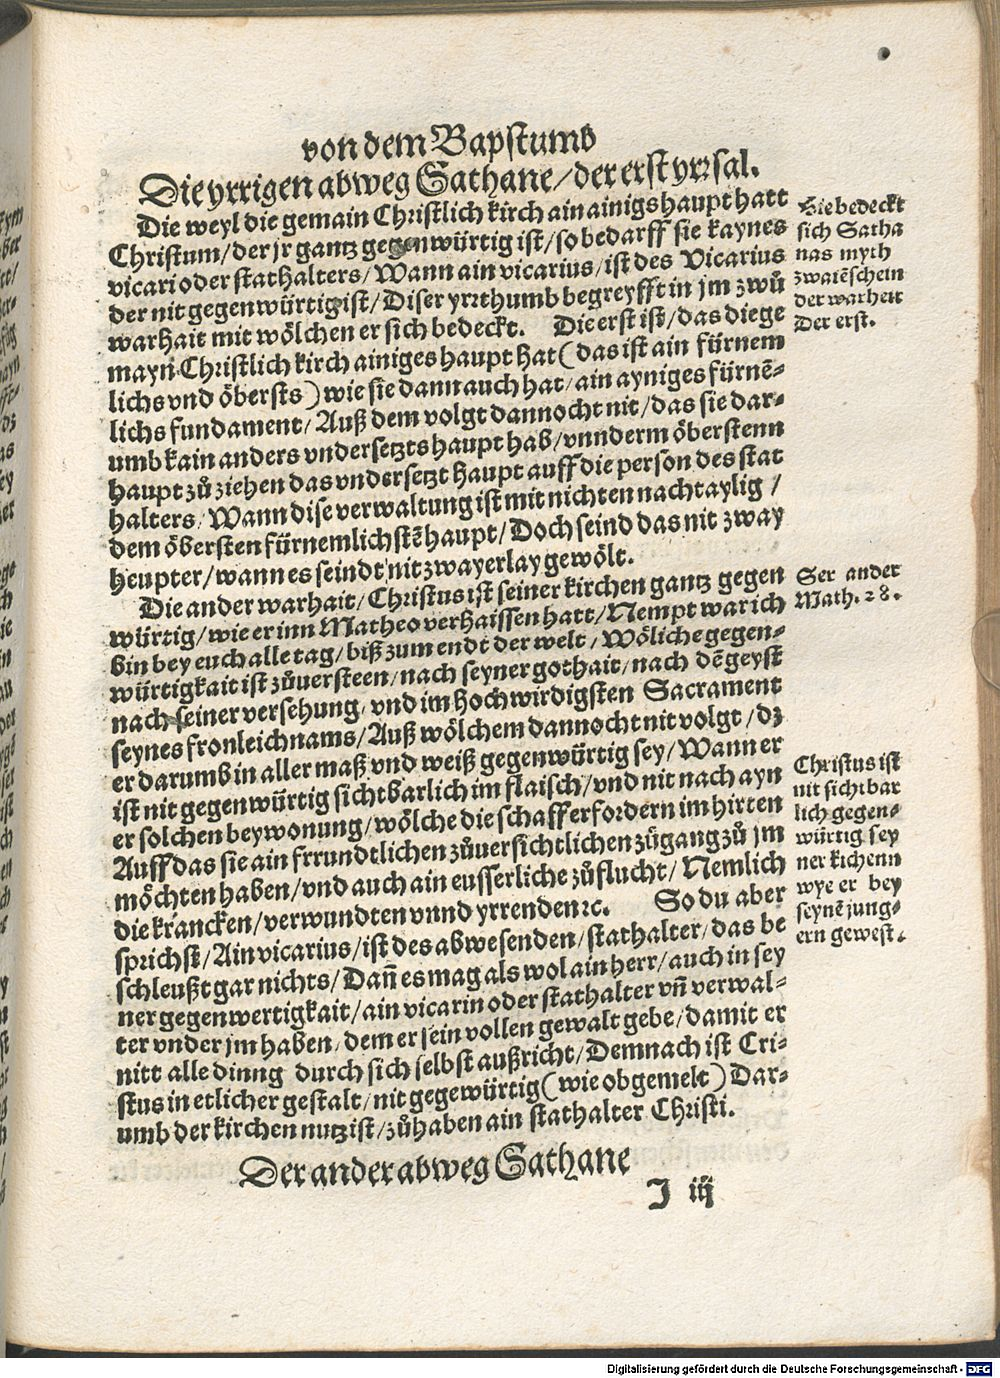 von dem Bapstumb
Die yrrigen abweg Sathane/der erst yrrsal.
Die weyl die gemain Christlich kirch ain ainigs haupt hatt
Christum/der jr gantz gegenwürtig ist/so bedarff sie kaynes
vicari oder stathalters/Wann ain vicarius/ist des Vicarius
der nit gegenwürtig ist/Diser yrrthumb begreyfft in jm zwů
warhait mit wölchen er sich bedeckt. Die erst ist/das die ge
mayn Christlich kirch ainiges haupt hat(das ist ain fürnem
lichs vnd öbersts)wie sie dann auch hat/ain ayniges fürnē-
lichs fundament/Auß dem volgt dannocht nit/das sie dar-
umb kain anders vndersetzts haupt hab/vnnd erm öberstenn
haupt zů ziehen das vndersetzt haupt auff die person des stat
halters/Wann dise verwaltung ist mit nichten nachtaylig/
dem öbersten fürnemlichstē haupt/Doch seind das nit zway
heupter/wann es seindt nit zwayerlay gewölt.
Die ander warhait/Christus ist seiner kirchen gantz gegen
würtig/wie er inn Matheo verhaissen hatt/Nempt war ich
bin bey euch alle tag/biß zum endt der welt/Wöliche gegen-
würtigkait ist zůuersteen/nach seyner gothait/nach dē geyst
nach seiner versehung/vnd im hochwirdigsten Sacrament
seynes fronleichnams/Auß wölchem dannocht nit volgt/dz
er darumb in aller maß vnd weiß gegenwürtig sey/Wann er
ist nit gegenwürtig sichtbarlich im flaisch/vnd nit nach ayn
er solchen beywonung/wölche die schaff erfordern im hirten
Auff das sie ain frrundtlichen zůuersichtlichen zůgang zů jm
möchten haben/vnd auch ain eusserliche zůflucht/Nemlich
die krancken/verwundten vnnd yrrenden ꝛc. So du aber
sprichst/Ain vicarius/ist des abwesenden/stathalter/das be
schleußt gar nichts/Dañ es mag als wol ain herr/auch in sey
ner gegenwertigkait/ain vicarin oder stathalter vñ verwal-
ter vnder jm haben/dem er sein vollen gewalt gebe/damit er
nitt alle dinng durch sich selbst außricht/Demnach ist Cri-
stus in etlicher gestalt/nit gegewürtig(wie obgemelt)Dar-
umb der kirchen nutz ist/zů haben ain stathalter Christi.
Der ander abweg Sathane
J iij
Hie bedeckt
sich Satha
nas myth
zwaiē schein
der warheit
Der erst.
Der ander
Math. 28.
Christus ist
nit sichtbar
lich gegen-
würtig sey
ner kichenn
wye er bey
seynē jung-
ern gewest.
Digitalisierung gefördert durch die Deutsche Forschungsgemeinschaft - DFG